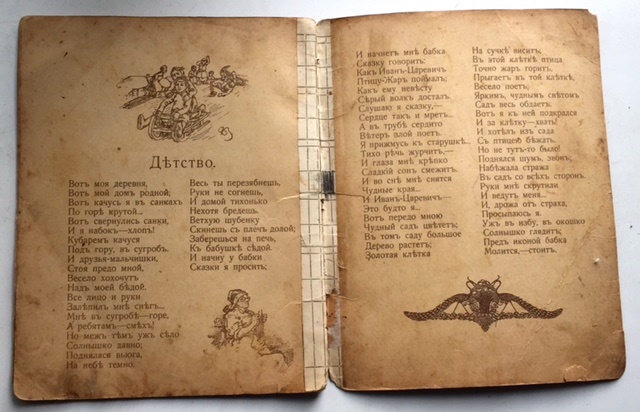 Дѣтство.
Вотъ моя деревня,
Вотъ мой домъ родной;
Вотъ качусь я въ санкахъ
По горѣ крутой...
Вотъ свернулись санки,
И я набокъ—хлопъ!
Кубаремъ качуся
Подъ гору, въ сугробъ.
И друзья-мальчишки,
Стоя предо мной,
Весело хохочутъ
Надъ моей бѣдой.
Все лицо и руки
Залѣпилъ мнѣ снѣгъ...
Мнѣ въ сугробѣ—горе,
А ребятамъ—смѣхъ!
Но межъ тѣмъ ужъ сѣло
Солнышко давно;
Поднялася вьюга,
На небѣ темно.
Весь ты перезябнешь,
Руки не согнешь,
И домой тихонько
Нехотя бредешь.
Ветхую шубенку
Скинешь съ плечъ долой;
Заберешься на печь,
Къ бабушкѣ сѣдой.
И начну у бабки
Сказки я просить;
И начнетъ мнѣ бабка
Сказку говорить:
Какъ Иванъ-Царевичъ
Птицу-Жаръ поймалъ;
Какъ ему невѣсту
Сѣрый волкъ досталъ.
Слушаю я сказку,—
Сердце такъ и мретъ.
А въ трубѣ сердито
Вѣтеръ злой поетъ.
Я прижмусь къ старушкѣ..
Тихо рѣчь журчитъ,—
И глаза мнѣ крѣпко
Сладкій сонъ смежитъ.
И во снѣ мнѣ снятся
Чудные края...
И Иванъ-Царевичъ—
Это будто я..
Вотъ передо мною
Чудный садъ цвѣтетъ;
Въ томъ саду большое
Дерево растетъ;
Золотая клѣтка
На сучкѣ виситъ;
Въ этой клѣткѣ птица
Точно жаръ горитъ.
Прыгаетъ въ той клѣткѣ,
Весело поетъ;
Яркимъ, чуднымъ свѣтомъ
Садъ весь обдаетъ.
Вотъ я къ ней подкрался
И за клѣтку—хвать!
И хотѣлъ изъ сада
Съ птицей бѣжать.
Но не тутъ-то было!
Поднялся шумъ, звонъ;
Набѣжала стража
Въ садъ со всѣхъ сторонъ.
Руки мнѣ скрутили
И ведутъ меня...
И, дрожа отъ страха,
Просыпаюсь я.
Ужъ въ избу, въ окошко
Солнышко глядитъ;
Предъ иконой бабка
Молится,—стоитъ.